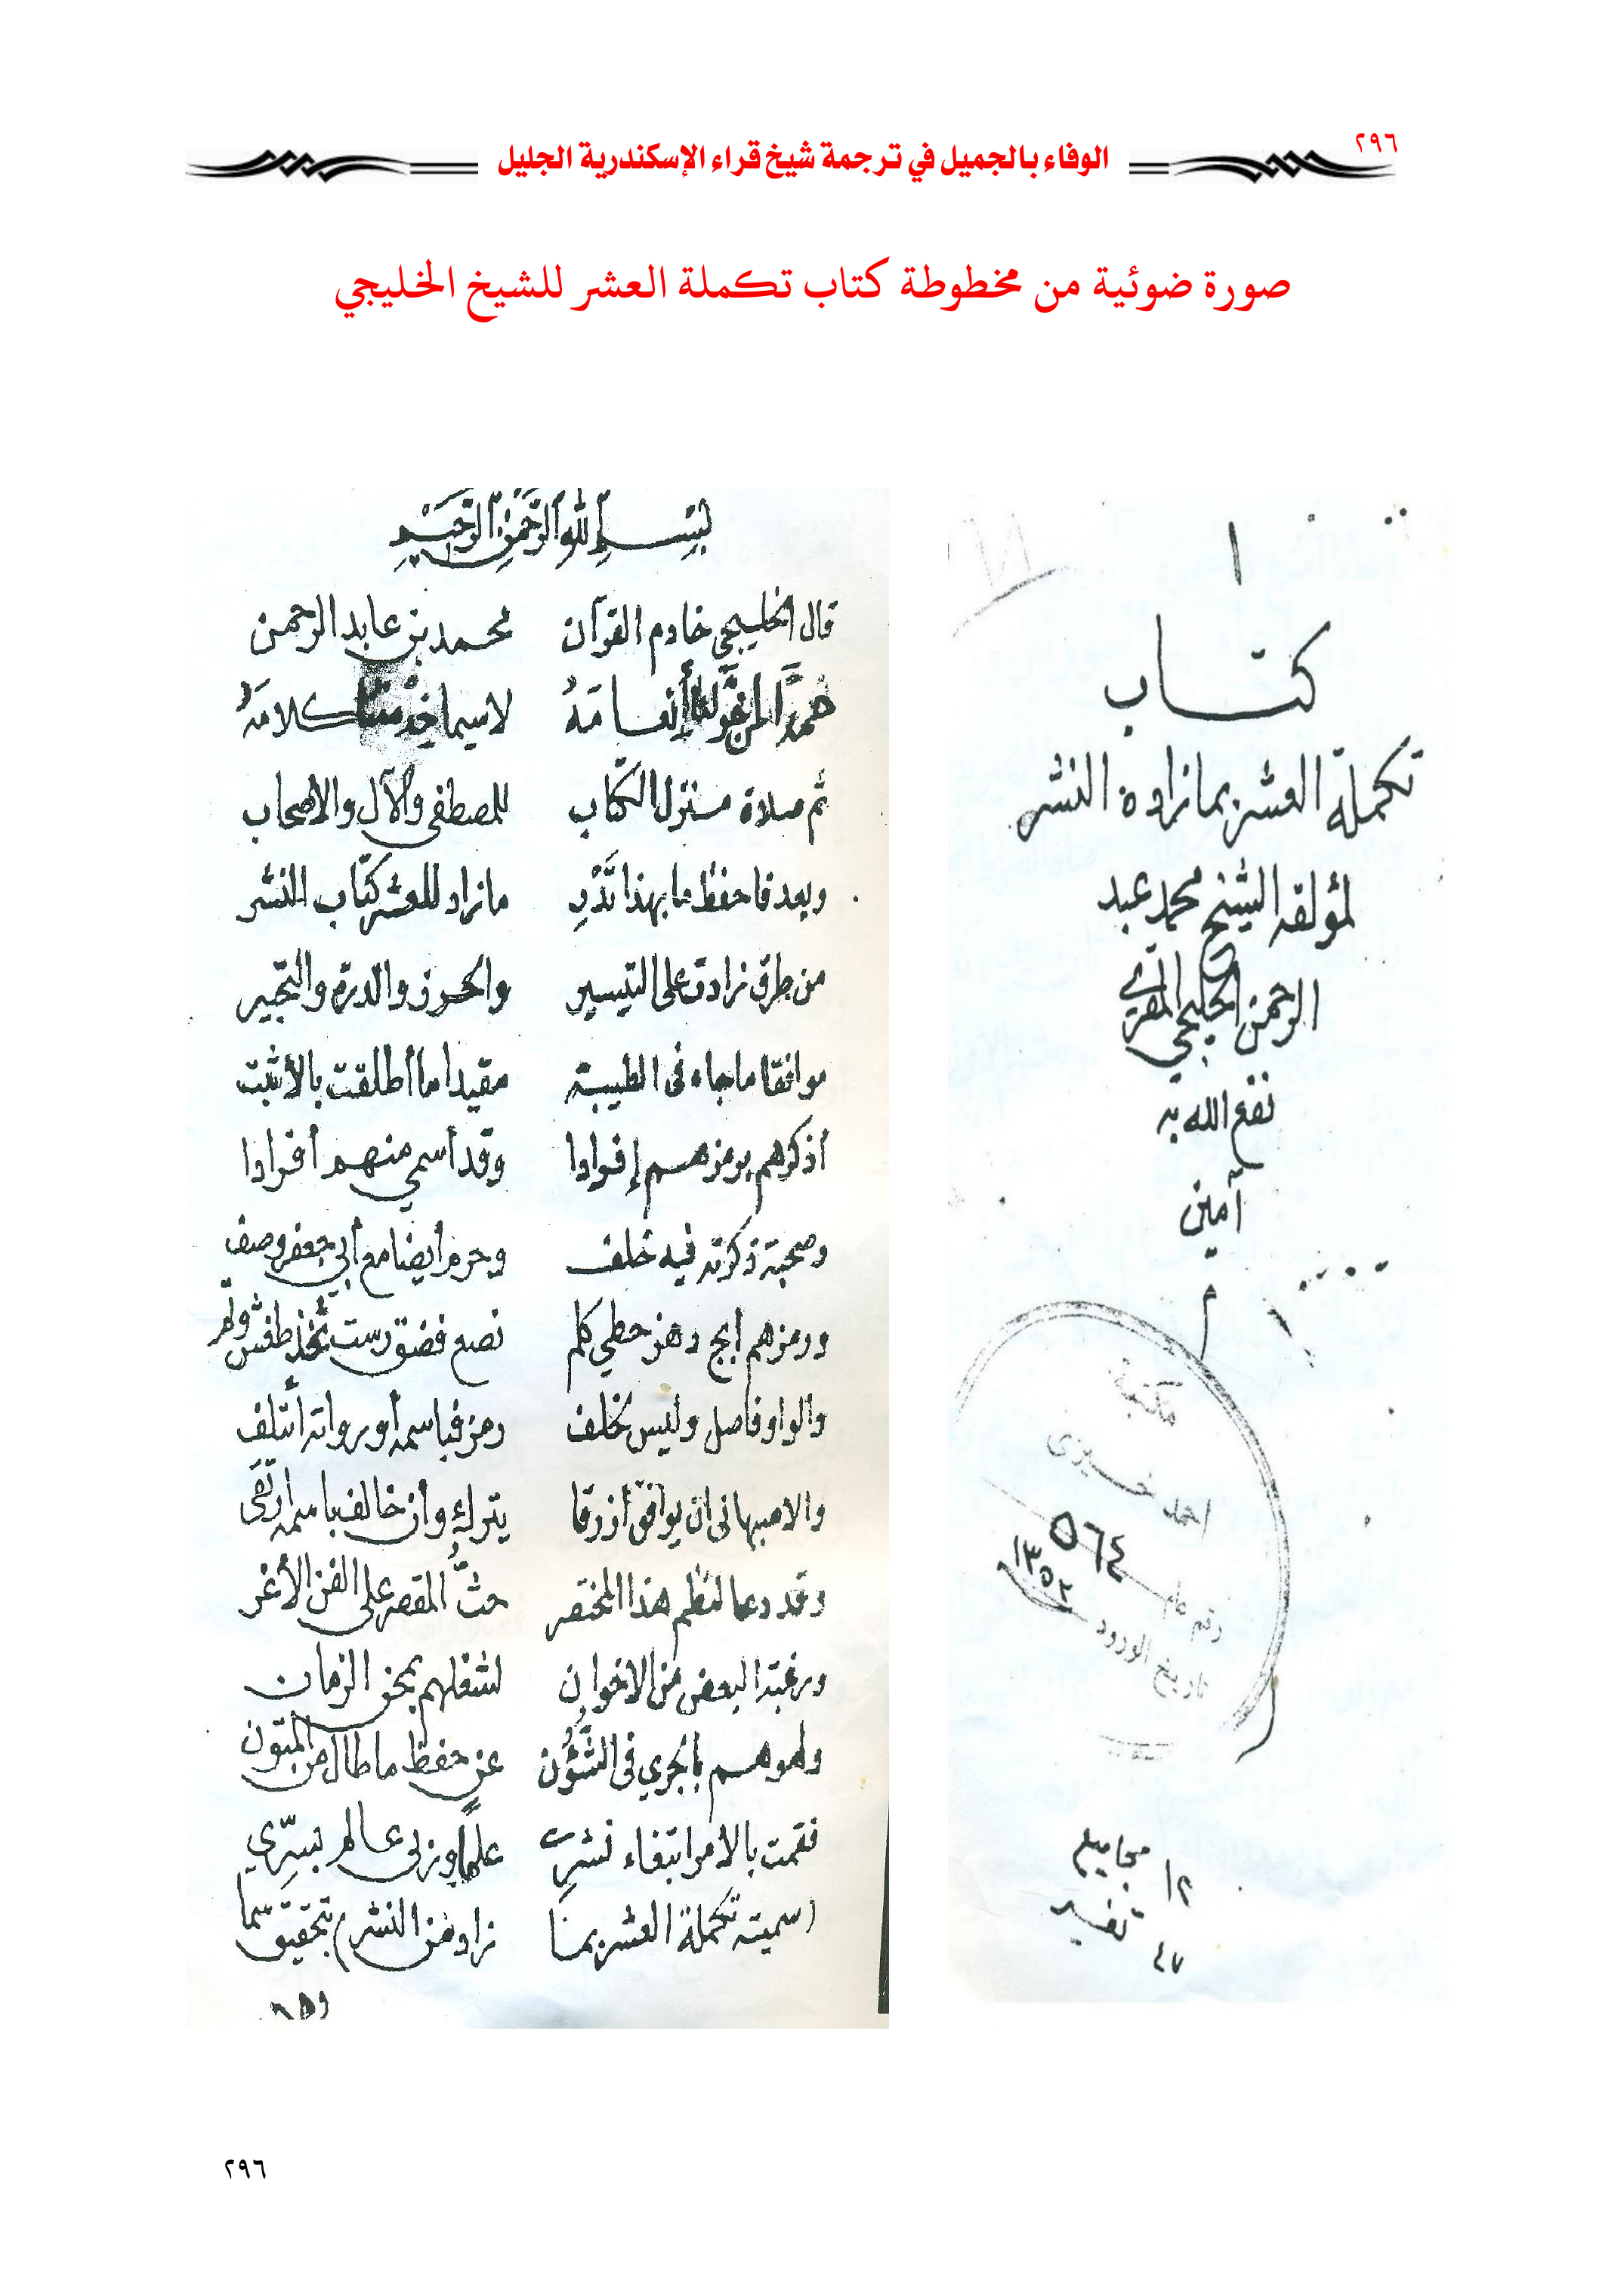 ٢٩٦
الوفاء بالجميل في ترجمة شيخ قراء الإسكندرية الجليل
صورة ضوئية من مخطوطة كتاب تكملة العشر للشيخ الخليجي
١
كتاب
تكملة العشر بما زاده النشر
لمؤلفه الشيخ محمد عبد
الرحمن الخليجي المقرئ
نفع الله به
آمين
م
مكتبة
احمد خيرى
رقم عام ٥٦٤
تاريخ الورود ١٣٥٢
١٢ مجاميع
تفسير
٤٧
بسم الله الرحمن الرحيم
قال الخليجي خادم القرآن محمد بن عابد الرحمن
حمدا لمن خولنا إنعامه لاسيما خدمتنا كلامه
ثم صلاة منزل الكتاب للمصطفى والآل والاصحاب
وبعد فاحفظ ما بهذا تدر ما زاد للعشر كتاب النشر
من طرق زادت على التيسير والحرز والدرة والتحبير
موافقا ما جاء فى الطيبة مقيدا ما أطلقت بالأثبت
أذكرهم برمزهم إفرادا وقد أسمي منهم أفرادا
وصحبة ذكرته فيه خلف وحرم أيضا مع أبي جعفر وصف
ورمزهم أبج دهز حطي كلم نصع فضق رست ثخذ طغش
والواو فاصل وليس يختلف رمز فباسمه أو رواته أتلف
والاصبهانى ان يوافق أزرقا يترك وأن خالف باسمه ارتقى
وقد دعا لنظم هذا المختصر حث المقصر على الفن الأغر
ورغبة البعض من الاخوان لشغلهم بمحن الزمان
ولهوهم بالجري فى الشؤن عن حفظ ما طال من المتون
فقمت بالأمر ابتغاء نشر علما وربى عالم بسري
(سميته تكملة العشر بما زاد من النشر) بتحقيق سما
٢٩٦